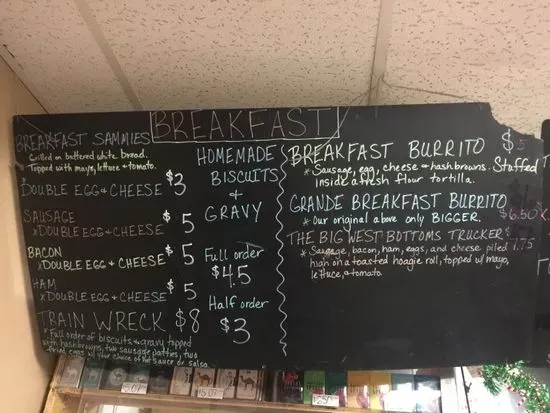 BREAKFAST
BREAKFAST SAMMIES
Grilled on buttered white bread.
Topped with mayo, lettuce & tomato.
DOUBLE EGG & CHEESE $3
SAUSAGE
x DOUBLE EGG & CHEESE $5
BACON
x DOUBLE EGG & CHEESE $5
HAM
x DOUBLE EGG & CHEESE $5
TRAIN WRECK $8
* Full order of biscuits & gravy topped
with hashbrowns, two sausage patties, two
fried eggs w/ your choice of hot sauce or salsa.
HOMEMADE
BISCUITS
&
GRAVY
Full order
$4.5
Half order
$3
BREAKFAST BURRITO $5
* Sausage, egg, cheese & hashbrowns. Stuffed
inside a fresh flour tortilla.
GRANDE BREAKFAST BURRITO
* Our original above only BIGGER. $6.50
THE BIG WEST BOTTOMS TRUCKER $
* Sausage, bacon, ham, eggs, and cheese piled 7.75
high on a toasted hoagie roll, topped w/ mayo,
lettuce, & tomato.